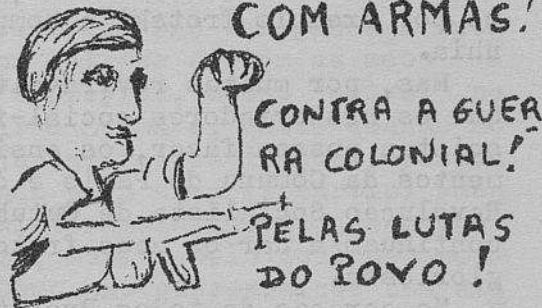 COM ARMAS!
CONTRA A GUER
RA COLONIAL!
PELAS LUTAS
DO POVO!